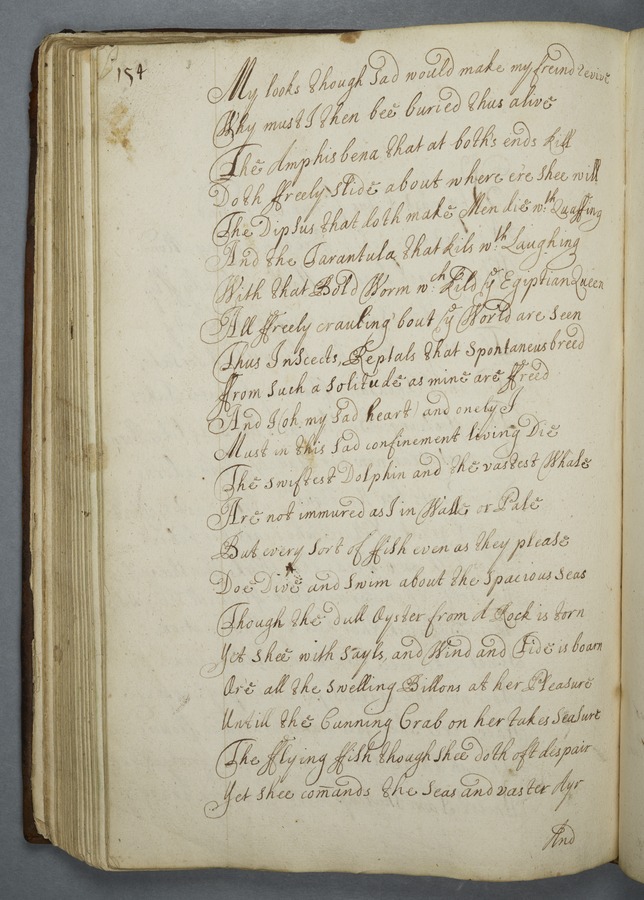 154
My looks though Sad would make my freind revive
Why must I then bee buried thus alive
The Amphisbena that at both's ends kill
Doth ffreely slide about where e're shee will
The Dipsus that doth make Men die wth Quaffing
And the Tarantula that kils wth Laughing
With that Bold Worm wch Kild ye Egiptian Queen
All ffreely crauling 'bout ye World are Seen
Thus Inscects, Reptals that Spontaneus breed
ffrom Such a Solitude as mine are ffreed
And I (oh my Sad heart) and onely I
Must in this Sad confinement living Die
The swiftest Dolphin and the vastest Whale
Are not immured as I in Walle or Pale
But every Sort of ffish even as they please
Doe Dive and Swim about the Spacious Seas
Though the dull Oyster from a Rock is torn
Yet Shee with Sayls, and Wind and Tide is boarn
Ore all the Swelling Billons at her Pleasure
Untill the Cunning Crab on her takes Seasure
The fflying ffish though Shee doth oft despair
Yet Shee comands the Seas and vaster Ayr
And